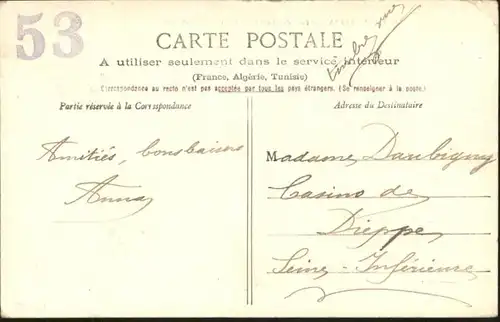 53
CARTE POSTALE
A utiliser seulement dans le service intérieur
(France, Algérie, Tunisie)
timbre vue
Correspondance au recto n'est pas acceptée par tous les pays étrangers. (Se renseigner à la poste)
Partie réservée à la Correspondance
Adresse du Destinataire
Amitiés, bons baisers
Anna
Madame Daubigny
Casino de
Dieppe
Seine-Inférieure